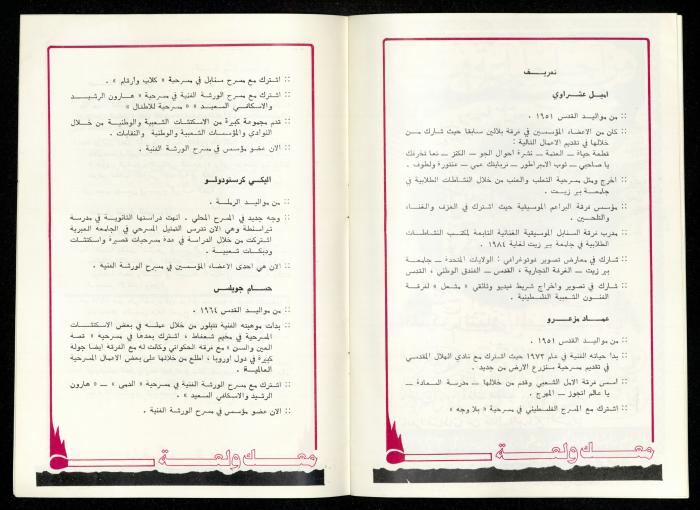 تعريف
اميل عشراوي
:: من مواليد القدس ١٩٥١ .
:: كان من الاعضاء المؤسسين في فرقة بلالين سابقا حيث شارك من
خلالها في تقديم الاعمال التالية :
قطعة حياة ـ العتمة ـ نشرة احوال الجو ـ الكنز ـ نعا نخرفك
يا صاحبي ـ ثوب الامبراطور ـ عمي ـ
:: اخرج ومثل مسرحية الثعلب والعنب من خلال النشاطات الطلابية في
جامعة بير زيت .
:: مؤسس فرقة البراعم الموسيقية حيث اشترك في العزف والغناء
والتلحين .
:: مدرب فرقة السنابل الموسيقية الغنائية التابعة لمكتب النشاطات
الطلابية في جامعة بير زيت لغاية ١٩٨٤
:: شارك في معارض تصوير فوتوغرافي : الولايات المتحدة ـ جامعة
بير زيت ـ الغرفة التجارية ، القدس ـ الفندق الوطني ، القدس
:: شارك في تصوير واخراج شريط فيديو وثائقي « مشعل » لفرقة
الفنون الشعبية الفلسطينية .
عماد مزعرو
:: من مواليد القدس ١٩٥١ .
:: بدأ حياته الفنية في عام ١٩٧٣ حيث اشترك مع نادي الهلال المقدسي
في تقديم مسرحية ستزرع الارض من جديد .
:: اسس فرقة الامل الشعبي وقدم من خلالها ـ مدرسة السعادة ـ
يا عالم اتجوز ـ المهرج .
:: اشترك مع المسرح الفلسطيني في مسرحية « بلا وجه »
معك ولعة
:: اشترك مع مسرح سنابل في مسرحية « كلاب وارقام » .
:: اشترك مع مسرح الورشة الفنية في مسرحية « هارون الرشيد
والاسكافي السعيد » « مسرحية للاطفال »
:: قدم مجموعة كبيرة من الاسكتشات الشعبية والوطنية من خلال
النوادي والمؤسسات الشعبية والوطنية والنقابات .
:: الان عضو مؤسس في مسرح الورشة الفنية .
اليكي كرسنودولو
:: من مواليد الرملة .
:: وجه جديد في المسرح المحلي . أنهت دراستها الثانوية في مدرسة
تيراسنطة وهي الان تدرس التمثيل المسرحي في الجامعه العبرية
اشتركت من خلال الدراسة في عدة مسرحيات قصيرة واسكتشات
ودبكات شعبية .
:: الان هي احدى الاعضاء المؤسسين في مسرح الورشة الفنيه .
حسام جويلس
:: من مواليد القدس ١٩٦٤ .
:: بدأت موهبته الفنية تتبلور من خلال عمله في بعض الاسكتشات
المسرحية في مخيم شعفاط ، اشترك بعدها في مسرحية « قصه
العين والسن » مع فرقه الحكواتي وكانت له مع الفرقه ايضا جولة
كبيرة في دول اوروبا ، اطلع من خلالها على بعض الاعمال المسرحية
العالمية .
:: اشترك مع مسرح الورشة الفنية في مسرحية « الدمى » ـ « هارون
الرشيد والاسكافي السعيد » .
:: الان عضو مؤسس في مسرح الورشة الفنية .
معك ولعة